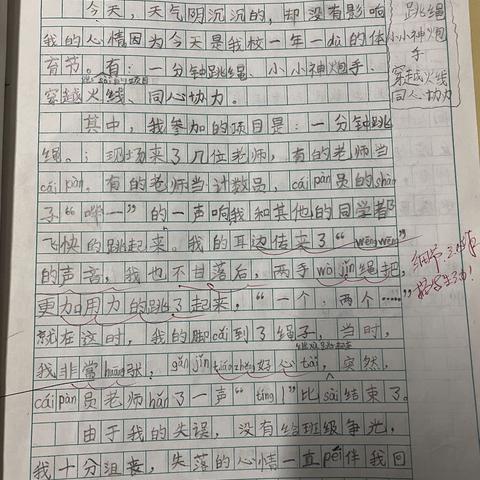 今天，天气阴沉沉的，却没有影响
我的心情因为今天是我校一年一dù的体
育节。有：一分钟跳绳、小小神炮手、
穿越火线、同心协力。
其中，我参加的项目是：一分钟跳
绳。；现场来了几位老师，有的老师当
cái pàn。有的老师当计数员，cái pàn员的shào
子“哔一”的一声响我和其他的同学都
飞快的跳起来。我的耳边传来了“wēng wēng”
的声音，我也不甘落后，两手wò jǐn绳把，
更加用力的跳了起来，“一个，两个……”
就在这时，我的脚cǎi到了绳子，当时，
我非常huāng张，gǎn jǐn tiáo zhěng好心tài，突然，
cái pàn员老师hǎn了一声“tíng！”比sài结束了。
由于我的失误，没有给班级争光，
我十分沮丧，失落的心情一直péi伴我回
跳绳
小小神炮
手
穿越火线
同心协力